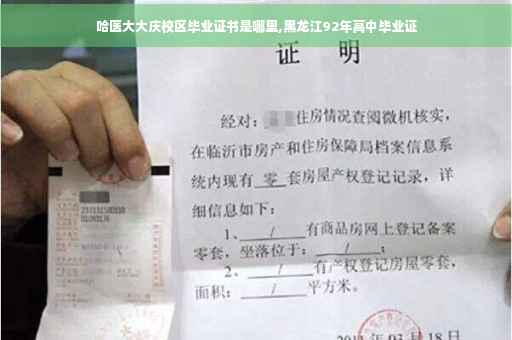 哈医大大庆校区毕业证书是哪里,黑龙江92年高中毕业证
证 明
经对: 住房情况查阅微机核实,
在临沂市房产和住房保障局档案信息系
统内现有 零 套房屋产权登记记录, 详
细信息如下:
1、 / 有商品房网上登记备案
零套, 坐落位于: / ;
2、 / 有产权登记房屋零套,
面积: / 平方米。
03 月 18 日